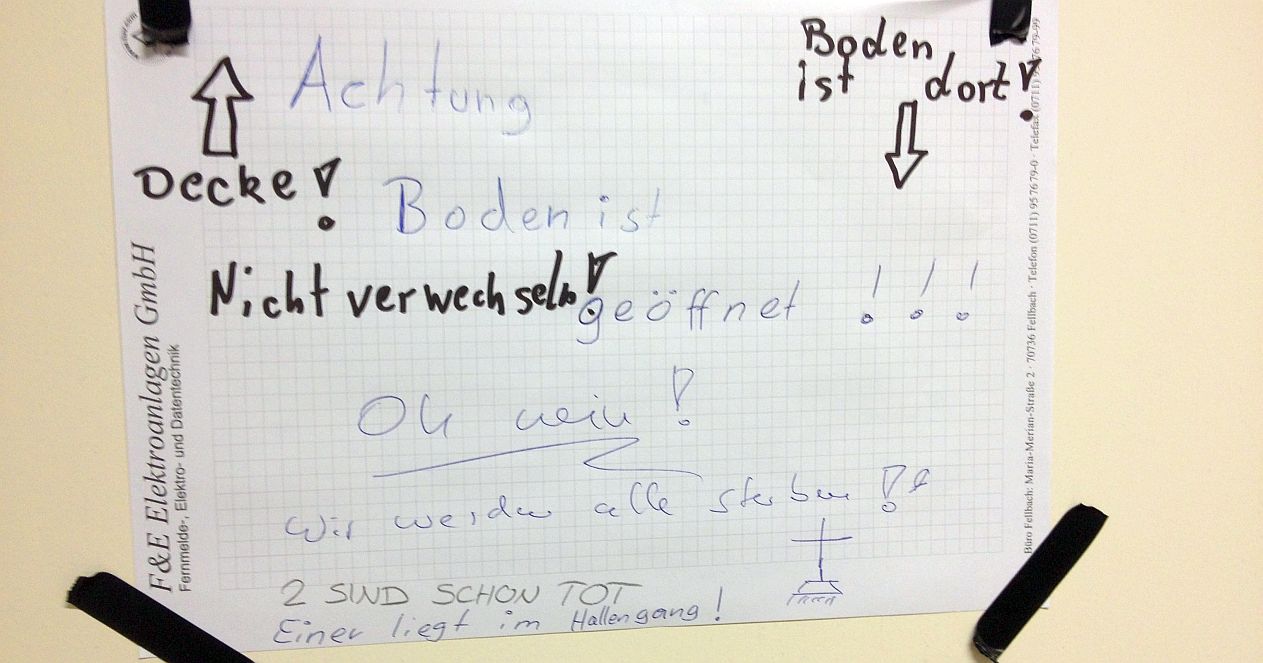 Achtung
Boden ist
geöffnet !!!
Decke!
Boden
ist dort!
Nicht verwechseln!
Oh nein!
Wir werden alle sterben!
2 SIND SCHON TOT
Einer liegt im Hallengang!
F&E Elektroanlagen GmbH
Fernmelde-, Elektro- und Datentechnik
Büro Fellbach: Maria-Merian-Straße 2 · 70736 Fellbach · Telefon (0711) 95 76 79-0 · Telefax (0711) 76 79-99